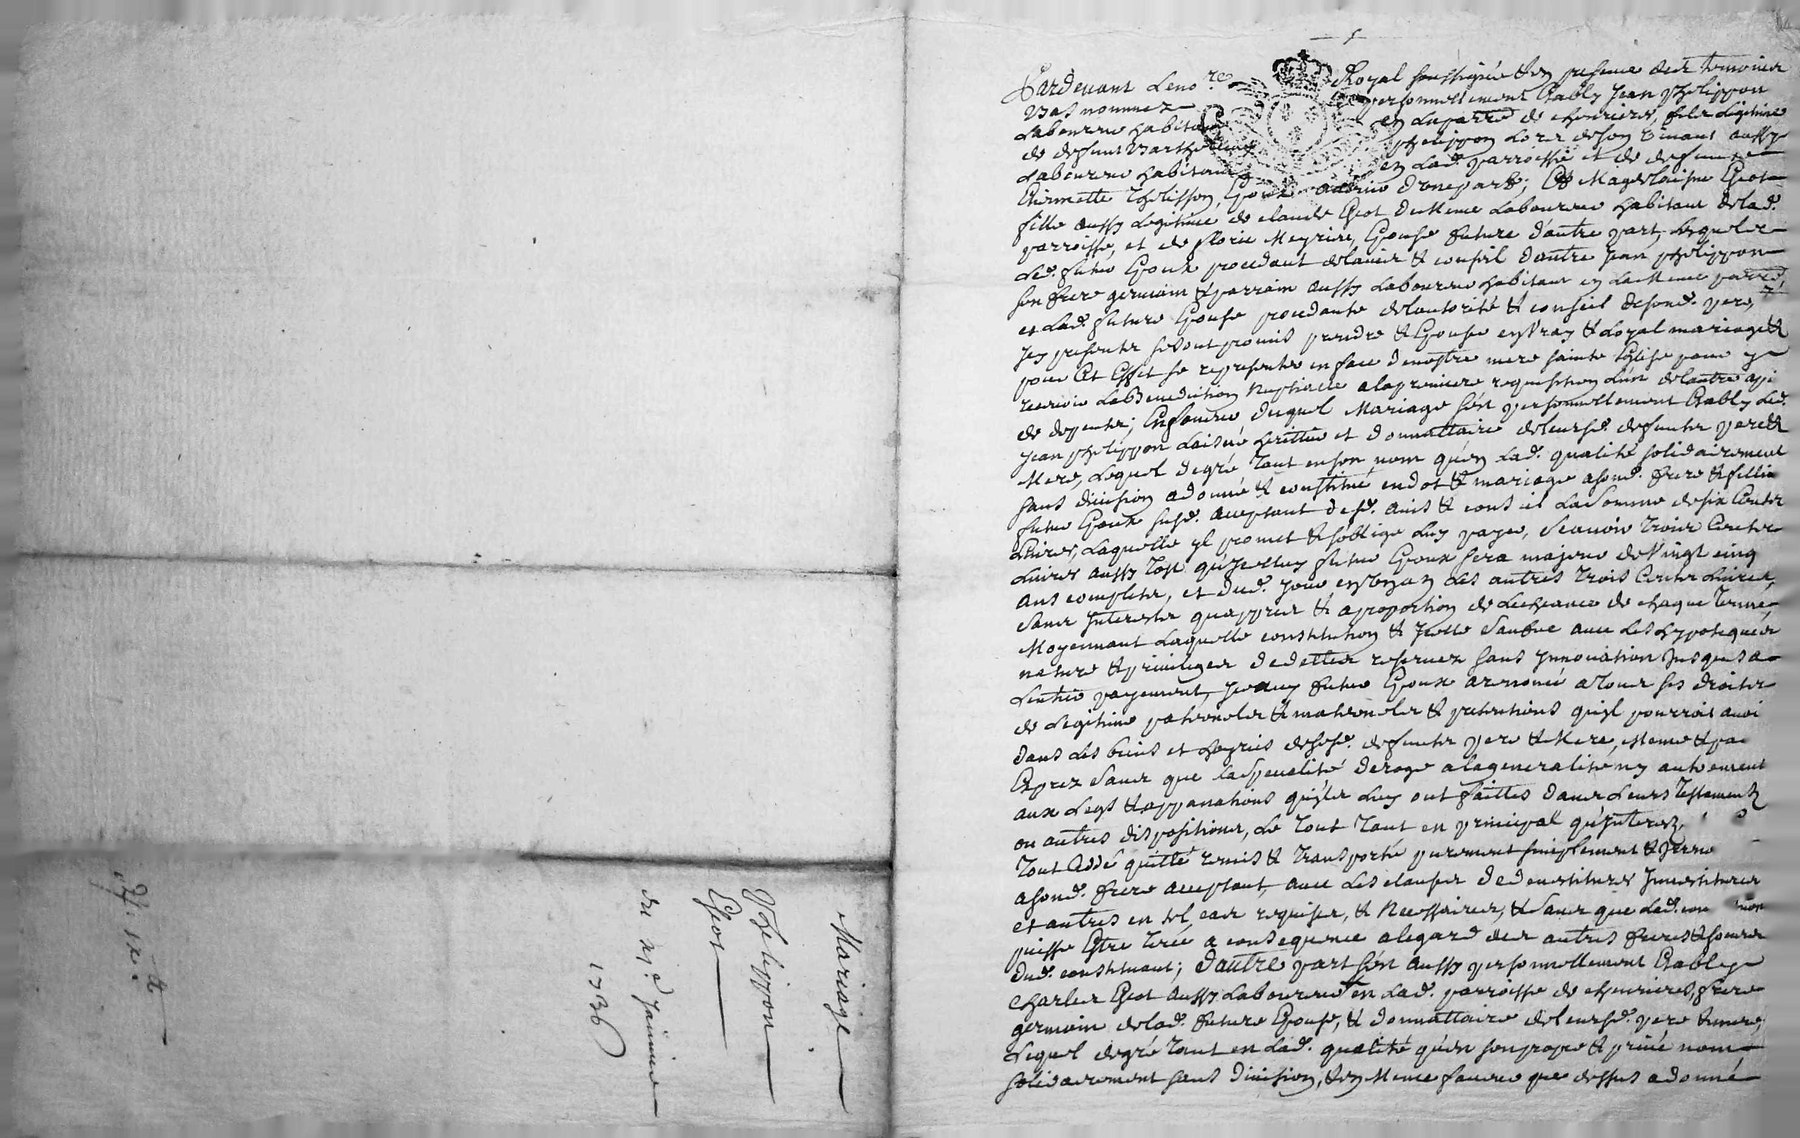 Mariage
Phelippon
Geot
du 21e Janvier
1736
Pardevant Le no.re Royal soussigné & en presence des temoins
bas nommez personnellement Estably Jean Phelippon
Laboureur habitant en La parr.e de chevrieres, fils Legitime
de deffunt Barthelemy phelippon Lors de son vivant aussy
Laboureur habitant en Lad. parroisse et de deffunte
Pierrette Thelisson, Epoux advenir d'une part; Et Magdelaine Geot
fille aussy Legitime de claude Geot de meme Laboureur habitant de lad.
parroisse, et de florie Meyrieu, Epouse future d'autre part, Lesquels
Led. futur Epoux procedant de l'avis & conseil d'autre Jean phelippon
son frere germain & parrain aussy Laboureur habitant en La meme parr.e
et Lad. future Epouse procedante de l'autorité & conseil de sond. pere,
Icy presents se sont promis prendre & Epouser en vray & Loyal mariage &
pour Cet Effet se representer en face de nostre mere sainte Eglise pour y
recevoir La Benediction Nuptiale a la premiere requisition L'un de l'autre a pei
de depens; En faveur duquel Mariage s'est personnellement Estably Led.
Jean phelippon Laisné heritier et donnattaire de leursd. deffunts pere &
Mere, Lequel de gré tant en son nom qu'en Lad. qualité solidairement
sans division a donné & constitué en dot & mariage a sond. frere & fillieu
futur Epoux susd. acceptant de sd. avis & conseil La somme de six Cents
Livres, Laquelle yl promet & s'oblige Luy payer, scavoir trois Cents
Livres aussy tost qu'Jceluy futur Epoux sera majeur de vingt cinq
ans complets, et dud. jour en un an Les autres trois Cents Livres,
sans Interests qu'apprez & a proportion de L'echeance de chaque terme,
Moyennant Laquelle constitution & Jcelle sauve avec Les hypoteques
nature & privileges de dettes reservez sans Innovation Jusques a
L'entier payement, Jceluy futur Epoux a renoncé a tous ses droits
de Legitime paternels & maternels & pretentions qu'yl pourroit avoi
dans Les biens et hoyries de sesd. deffunts pere & Mere, Meme & pa
Exprez sans que la specialité deroge a la generalité ny autrement
aux Legs & appanations qu'yls Luy ont faittes dans Leurs Testaments
ou autres dispositions, Le tout tant en principal qu'Interets,
tout Cedé quitté remis & transporté purement simplement &
a sond. frere acceptant, avec Les clauses de devestitures Investitures
et autres en tel cas requises, & Necessaires, & sans que Lad.
puisse Estre tirée a consequence a l'egard des autres freres & soeurs
dud. constituant; d'autre part s'est aussy personnellement Estably
Charles Geot aussy Laboureur en Lad. parroisse de chevrieres, frere
germain de lad. future Epouse, & donnattaire de leursd. pere & mere,
Lequel de gré tant en Lad. qualité qu'en son propre & privé nom
solidairement sans division, & en Meme faveur que dessus a donné